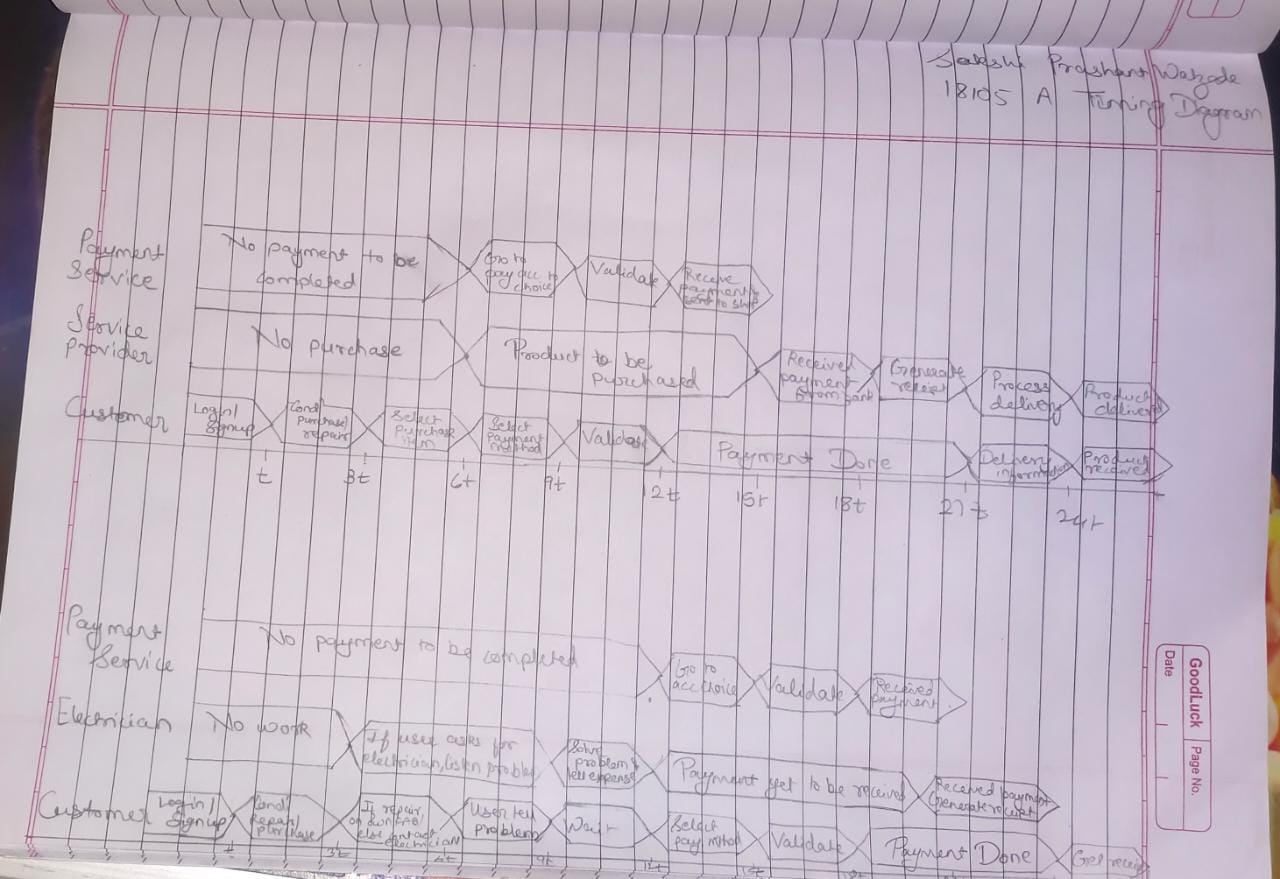 Sakshi Prashant Walzade
18105 A Timing Diagram
Payment Service
No payment to be completed
Go to pay acc to choice
Validate
Receive payment & sent to ship
Service Provider
No purchase
Product to be purchased
Received payment from bank
Generate receipt
Process delivery
Product delivered
Customer
Login/ Signup
Cond purchase/ repair
Select Purchase item
Select Payment method
Validate
Payment Done
Delivery information
Product received
t 3t 6t 9t 12t 15t 18t 21t 24t
Payment Service
No payment to be completed
Go to acc choice
Validate
Received payment
Electrician
No work
If user asks for electrician, listen problem
Solve problem tell expense
Payment yet to be received
Received payment Generate receipt
Customer
Login/ Signup
Cond Repair/ purchase
If repair on own FAQ/ else contact electrician
User tell problem
Wait
Select pay mthod
Validate
Payment Done
Get receip
t 3t 6t 9t 12t 15t
GoodLuck
Page No.
Date